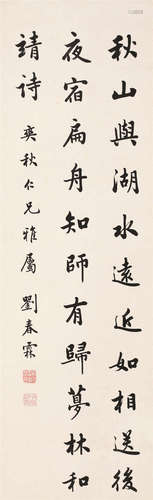 秋山與湖水遠近如相送後
夜宿扁舟知師有歸夢林和
靖詩
奕秋仁兄雅屬
劉春霖